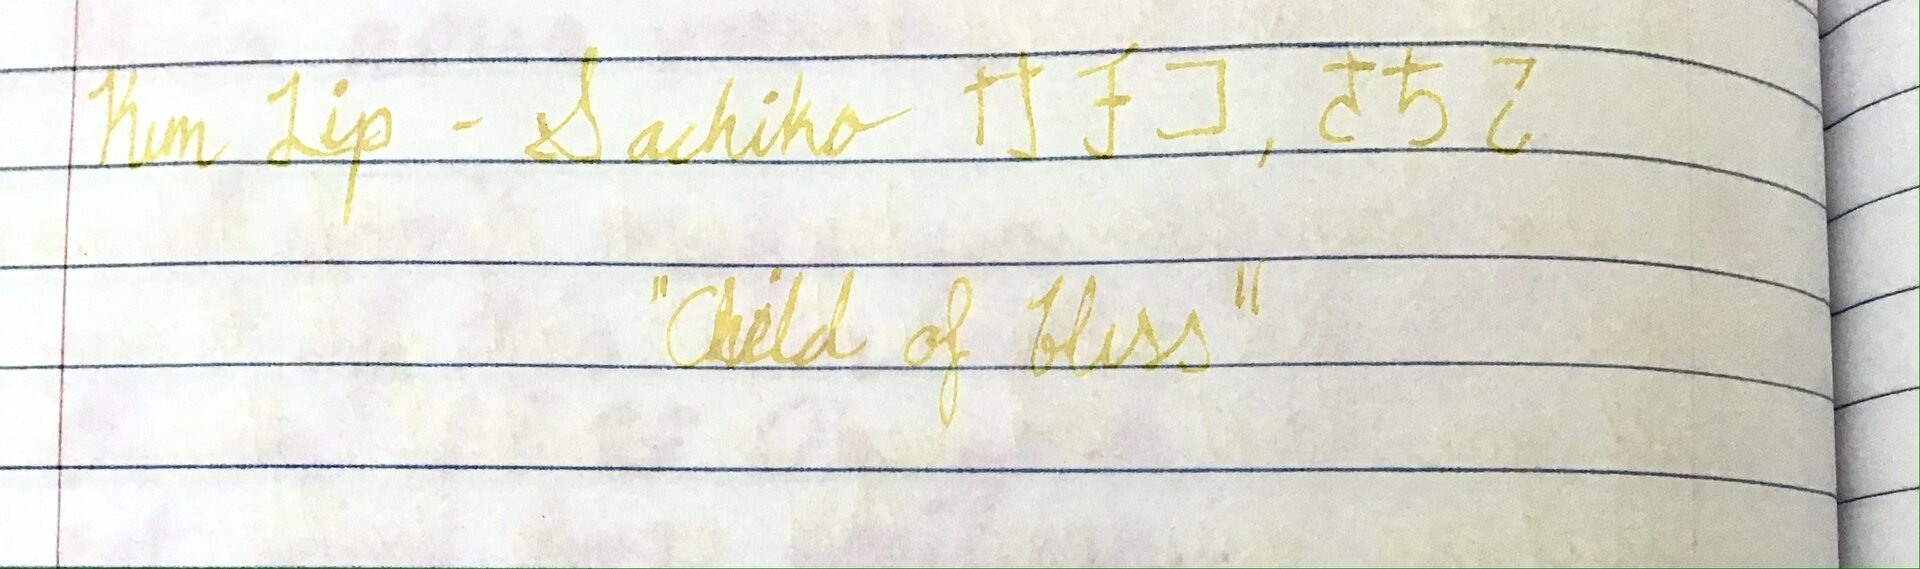 Kim Lip - Sachiko サチコ, さちこ
"Child of bliss"